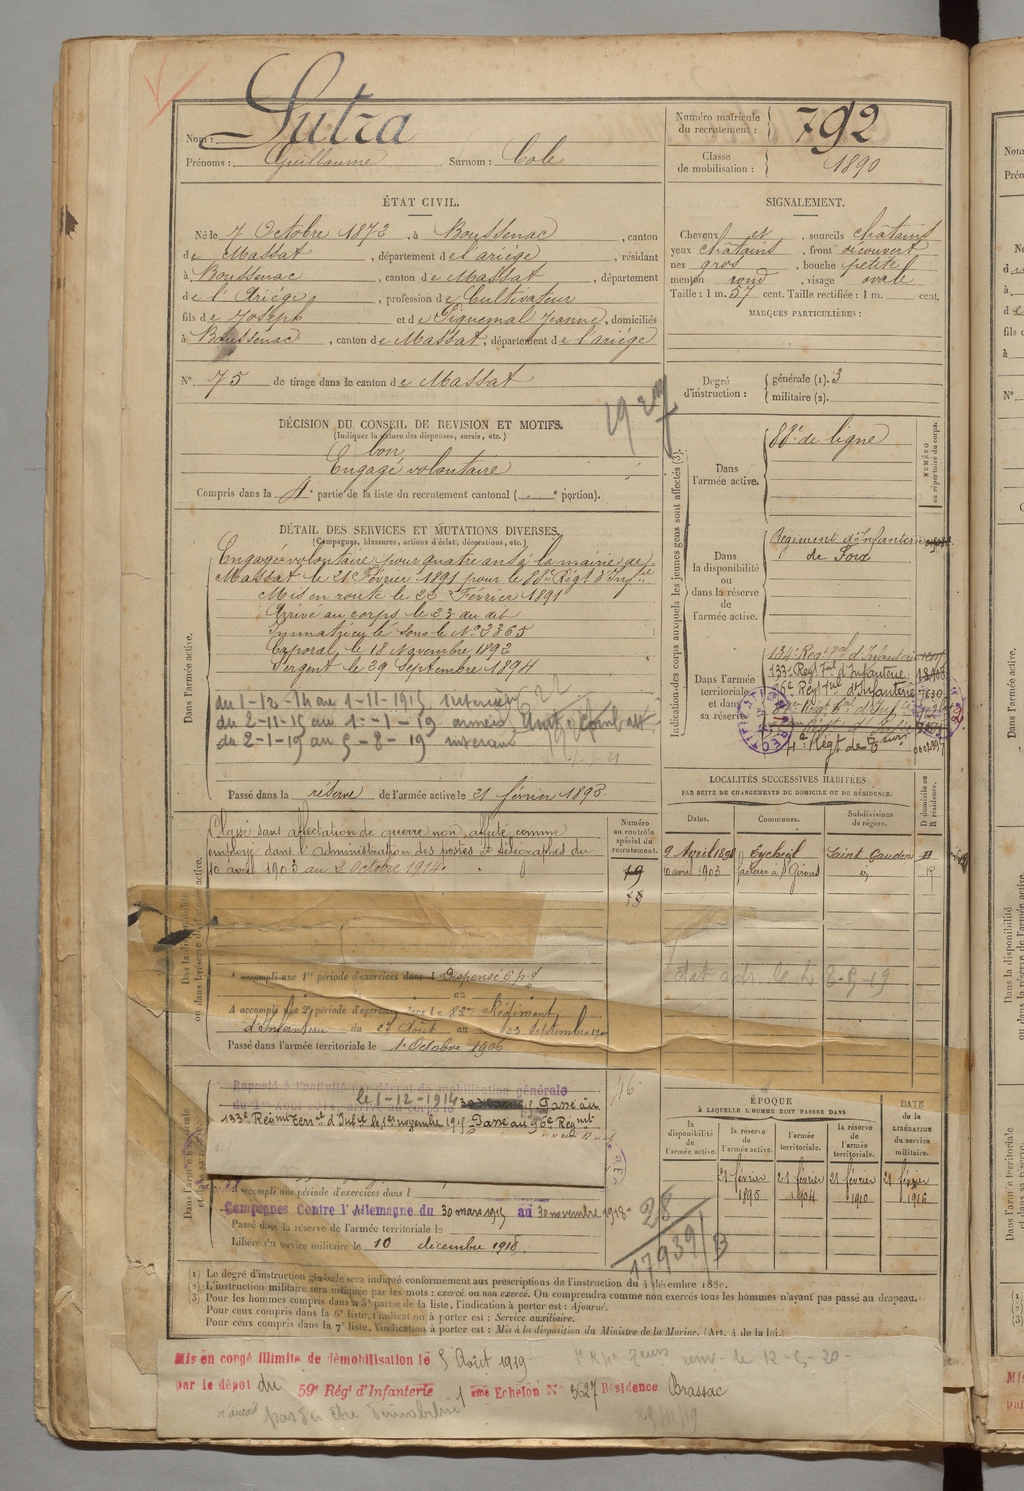 Nom : Sutra
Prénoms : Guillaume Surnom : Cole
Numéro matricule du recrutement : 792
Classe de mobilisation : 1890
ÉTAT CIVIL.
Né le 7 Octobre 1872, à Boussenac, canton
de Massat, département de l'ariége, résidant
à Boussenac, canton de Massat, département
de l'Ariége, profession de Cultivateur
fils de Joseph et de Piquemal Jeanne, domiciliés
à Boussenac, canton de Massat, département de l'ariége
N° 75 de tirage dans le canton de Massat
SIGNALEMENT.
Cheveux et, sourcils chatains
yeux chatains, front découvert
nez gros, bouche petite
menton rond, visage ovale
Taille : 1 m. 57 cent. Taille rectifiée : 1 m. cent.
MARQUES PARTICULIÈRES :
Degré d'instruction : générale (1). 3
militaire (2).
DÉCISION DU CONSEIL DE REVISION ET MOTIFS.
(Indiquer la nature des dispenses, sursis, etc.)
bon
Engagé volontaire
Compris dans la 4e partie de la liste du recrutement cantonal ( e portion).
1927
DÉTAIL DES SERVICES ET MUTATIONS DIVERSES.
(Campagnes, blessures, actions d'éclat, décorations, etc.)
Dans l'armée active.
Engagé volontaire pour quatre ans à la mairie de
Massat le 21 Février 1891 pour le 88e Régt d'Infrie
Mis en route le 22 Février 1891
Arrivé au corps le 23 du dit
Immatriculé sous le N° 2365
Caporal le 18 Novembre 1892
Sergent le 29 Septembre 1894
du 1-12-14 au 1-11-15 intérieur
du 2-11-15 au 1-1-19 armées
du 2-1-19 au 5-8-19 intérieur
Passé dans la réserve de l'armée active le 21 février 1895
Indication des corps auxquels les jeunes gens sont affectés (3).
NUMÉRO au répertoire du corps.
Dans l'armée active.
88e de ligne
Dans la disponibilité ou dans la réserve de l'armée active.
Régiment d'Infanterie
de Foix
Dans l'armée territoriale et dans sa réserve
134e Régt Tal d'Infanterie
133e Régt Tal d'Infanterie
96e Régt Tal d'Infanterie
4e Régt de
LOCALITÉS SUCCESSIVES HABITÉES
PAR SUITE DE CHANGEMENTS DE DOMICILE OU DE RÉSIDENCE.
Dates. Communes. Subdivisions de région. D domicile ou R résidence.
9 Avril 1898 Eycheil Saint Gaudens D
10 avril 1903 facteur à St Girons id R
Numéro au contrôle spécial du recrutement.
Classé sans affectation de guerre non affecté comme
employé dans l'administration des postes et télégraphes du
10 avril 1903 au 2 Octobre 1914.
Dans la disponibilité ou dans la réserve de l'armée active.
A accompli une 1re période d'exercices dans l Dispensé
A accompli une 2e période d'exercices dans le 83e Régiment
d'Infanterie du 27 Août au 23 septembre
Passé dans l'armée territoriale le 1er Octobre 1906
Rappelé à l'activité par décret de mobilisation générale
le 1-12-1914 Passé au
133e Régiment Terral d'Infie le 1er novembre 1915 Passé au 96e Régmt
A accompli une période d'exercices dans l
Campagnes Contre l'Allemagne du 30 mars 1915 au 30 novembre 1918
Passé dans la réserve de l'armée territoriale le
Libéré du service militaire le 10 décembre 1918.
28
17939/B
ÉPOQUE
À LAQUELLE L'HOMME DOIT PASSER DANS
la disponibilité de l'armée active.
la réserve de l'armée active.
l'armée territoriale.
la réserve de l'armée territoriale.
DATE de la LIBÉRATION du service militaire.
21 février 1895
21 février 1904
21 février 1910
21 février 1916
(1) Le degré d'instruction générale sera indiqué conformément aux prescriptions de l'instruction du 4 décembre 1889.
(2) L'instruction militaire sera indiquée par les mots : exercé ou non exercé. On comprendra comme non exercés tous les hommes n'ayant pas passé au drapeau.
(3) Pour les hommes compris dans la 5e partie de la liste, l'indication à porter est : Ajourné.
Pour ceux compris dans la 6e liste, l'indication à porter est : Service auxiliaire.
Pour ceux compris dans la 7e liste, l'indication à porter est : Mis à la disposition du Ministre de la Marine. (Art. 4 de la loi.)
Mis en congé illimité de démobilisation le 5 Août 1919
par le dépôt du 59e Régt d'Infanterie 1 ème Echelon N° 3627 Résidence Brassac